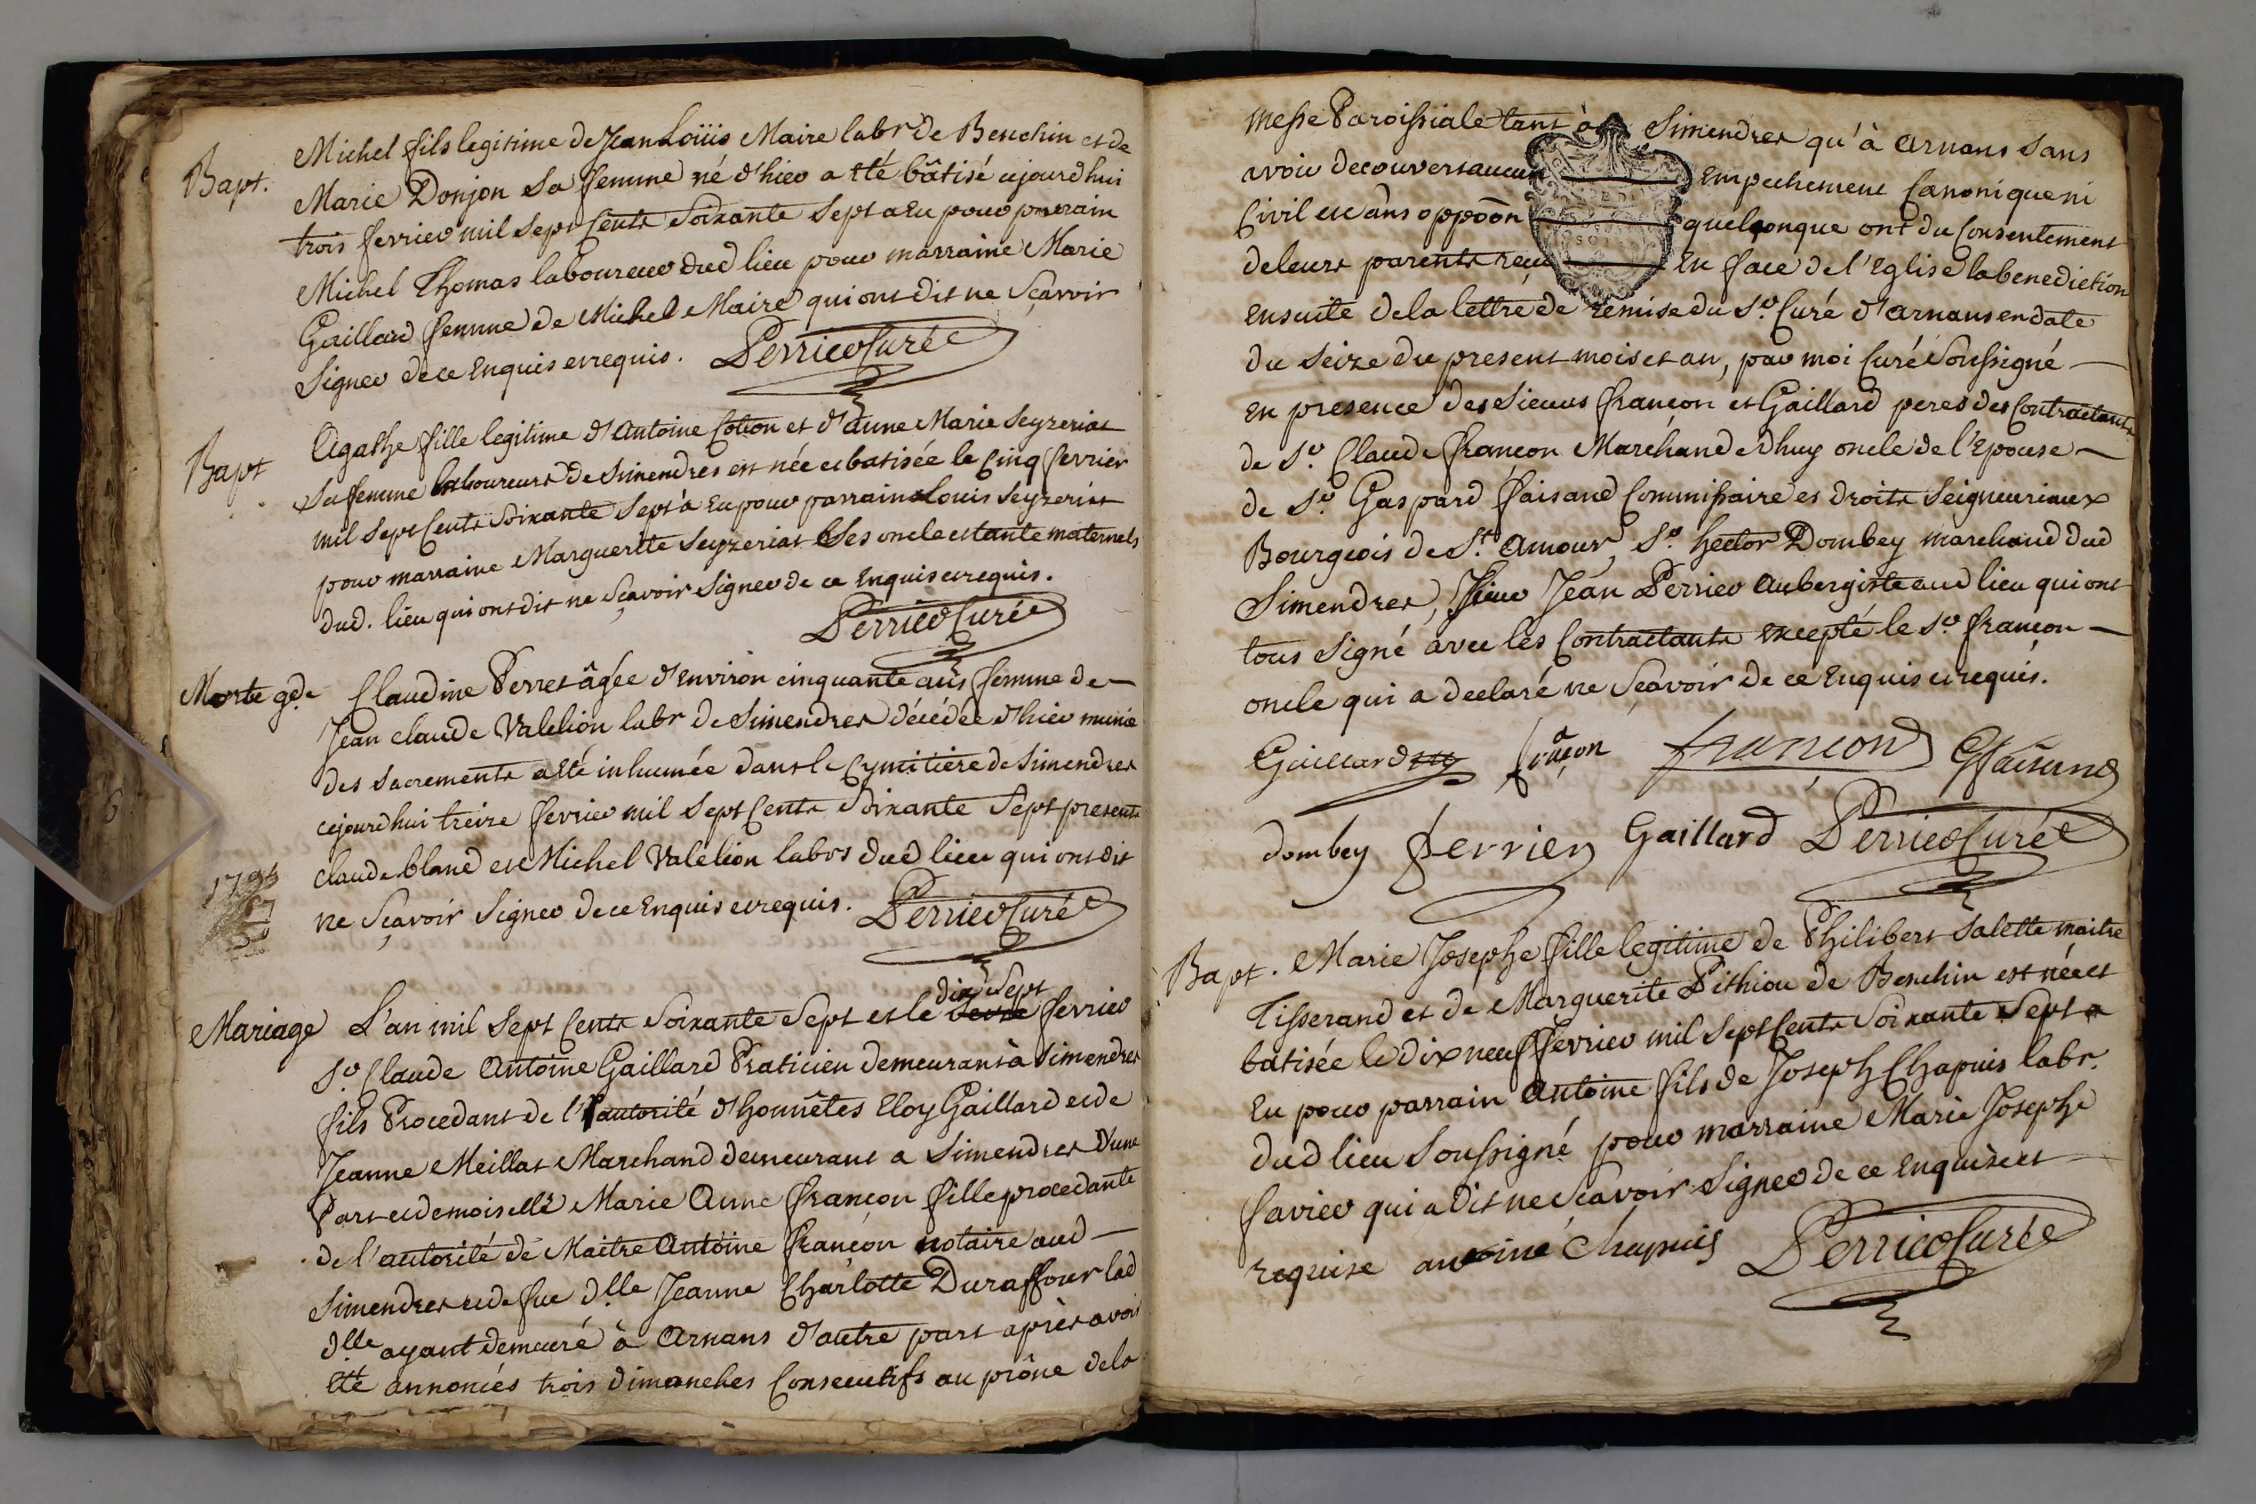 Bapt. Michel fils legitime de Jean Loüis Maire labr de Benchin et de
Marie Donjon Sa femme né d'hier a été bâtisé cejourdhui
trois fevrier mil Sept Cents Soixante Sept a Eu pour parrain
Michel Thomas laboureur dud lieu pour marraine Marie
Gaillard femme de Michel Maire qui ont dit ne Sçavoir
Signer de ce Enquis et requis. Perrier Curé
Bapt Agathe fille legitime d'Antoine Cotton et d'anne Marie Seyzeriat
Sa femme laboureurs de Simendres est née et batisée le Cinq fevrier
mil Sept Cents Soixante Sept à Eu pour parrain Louis Seyzeriat
pour marraine Marguerite Seyzeriat Ses oncle et tante maternels
dud. lieu qui ont dit ne Sçavoir Signer de ce Enquis et requis.
Perrier Curé
Morte gde Claudine Perret âgée d'Environ cinquante ans femme de
Jean claude Valelion labr de Simendres décédée d'hier munie
des Sacrements a été inhumée dans le Cymitière de Simendres
cejourdhui treize fevrier mil Sept Cents Soixante Sept presents
claude bland et Michel Valelion labrs dud lieu qui ont dit
ne Sçavoir Signer de ce Enquis et requis. Perrier Curé
dix Sept
Mariage L'an mil Sept Cents Soixante Sept et le fevrier
Sr Claude Antoine Gaillard Praticien demeurant à Simendres
fils Procedant de l'autorité d'honnêtes Eloy Gaillard et de
Jeanne Meillat Marchand demeurant a Simendres D'une
Part et demoiselle Marie Anne françon fille procedante
de l'autorité de Maitre Antoine françon notaire aud
Simendres et de fue dlle Jeanne Charlotte Duraffour lad
dlle ayant demeuré à Arnans d'autre part après avoir
été annoncés trois dimanches Consecutifs au prône de la
messe Paroissiale tant à Simendres qu'à Arnans Sans
avoir decouvert aucun Empechement Canonique ni
Civil et sans oppoõn quelconque ont du Consentement
de leurs parents reçu En face de l'Eglise la benediction
ensuite de la lettre de remise du Sr Curé d'Arnans en date
du Seize du present mois et an, par moi Curé Soussigné
En presence des Sieurs françon et Gaillard peres des Contractants
de Sr Claude françon Marchand d'huy oncle de l'Epouse
de Sr Gaspard faisand Commissaire es droits Seigneuriaux
Bourgeois de St Amour, Sr hector Dombey marchand dud
Simendres, Sieur Jean Perrier Aubergiste aud lieu qui ont
tous Signé avec les Contractants excepté le Sr françon
oncle qui a declaré ne Sçavoir de ce Enquis et requis.
Gaillard frãçon françon Gfaisand
dombey perrier Gaillard Perrier Curé
Bapt. Marie Josephe fille legitime de Philibert Salette maitre
Tisserand et de Marguerite Pithiou de Benchin est née et
batisée le dix neuf fevrier mil Sept Cents Soixante Sept a
Eu pour parrain Antoine fils de Joseph Chapuis labr.
dud lieu Soussigné pour marraine Marie Josephe
favier qui a dit ne Scavoir Signer de ce Enquise et
requise antoine Chapuis Perrier Curé